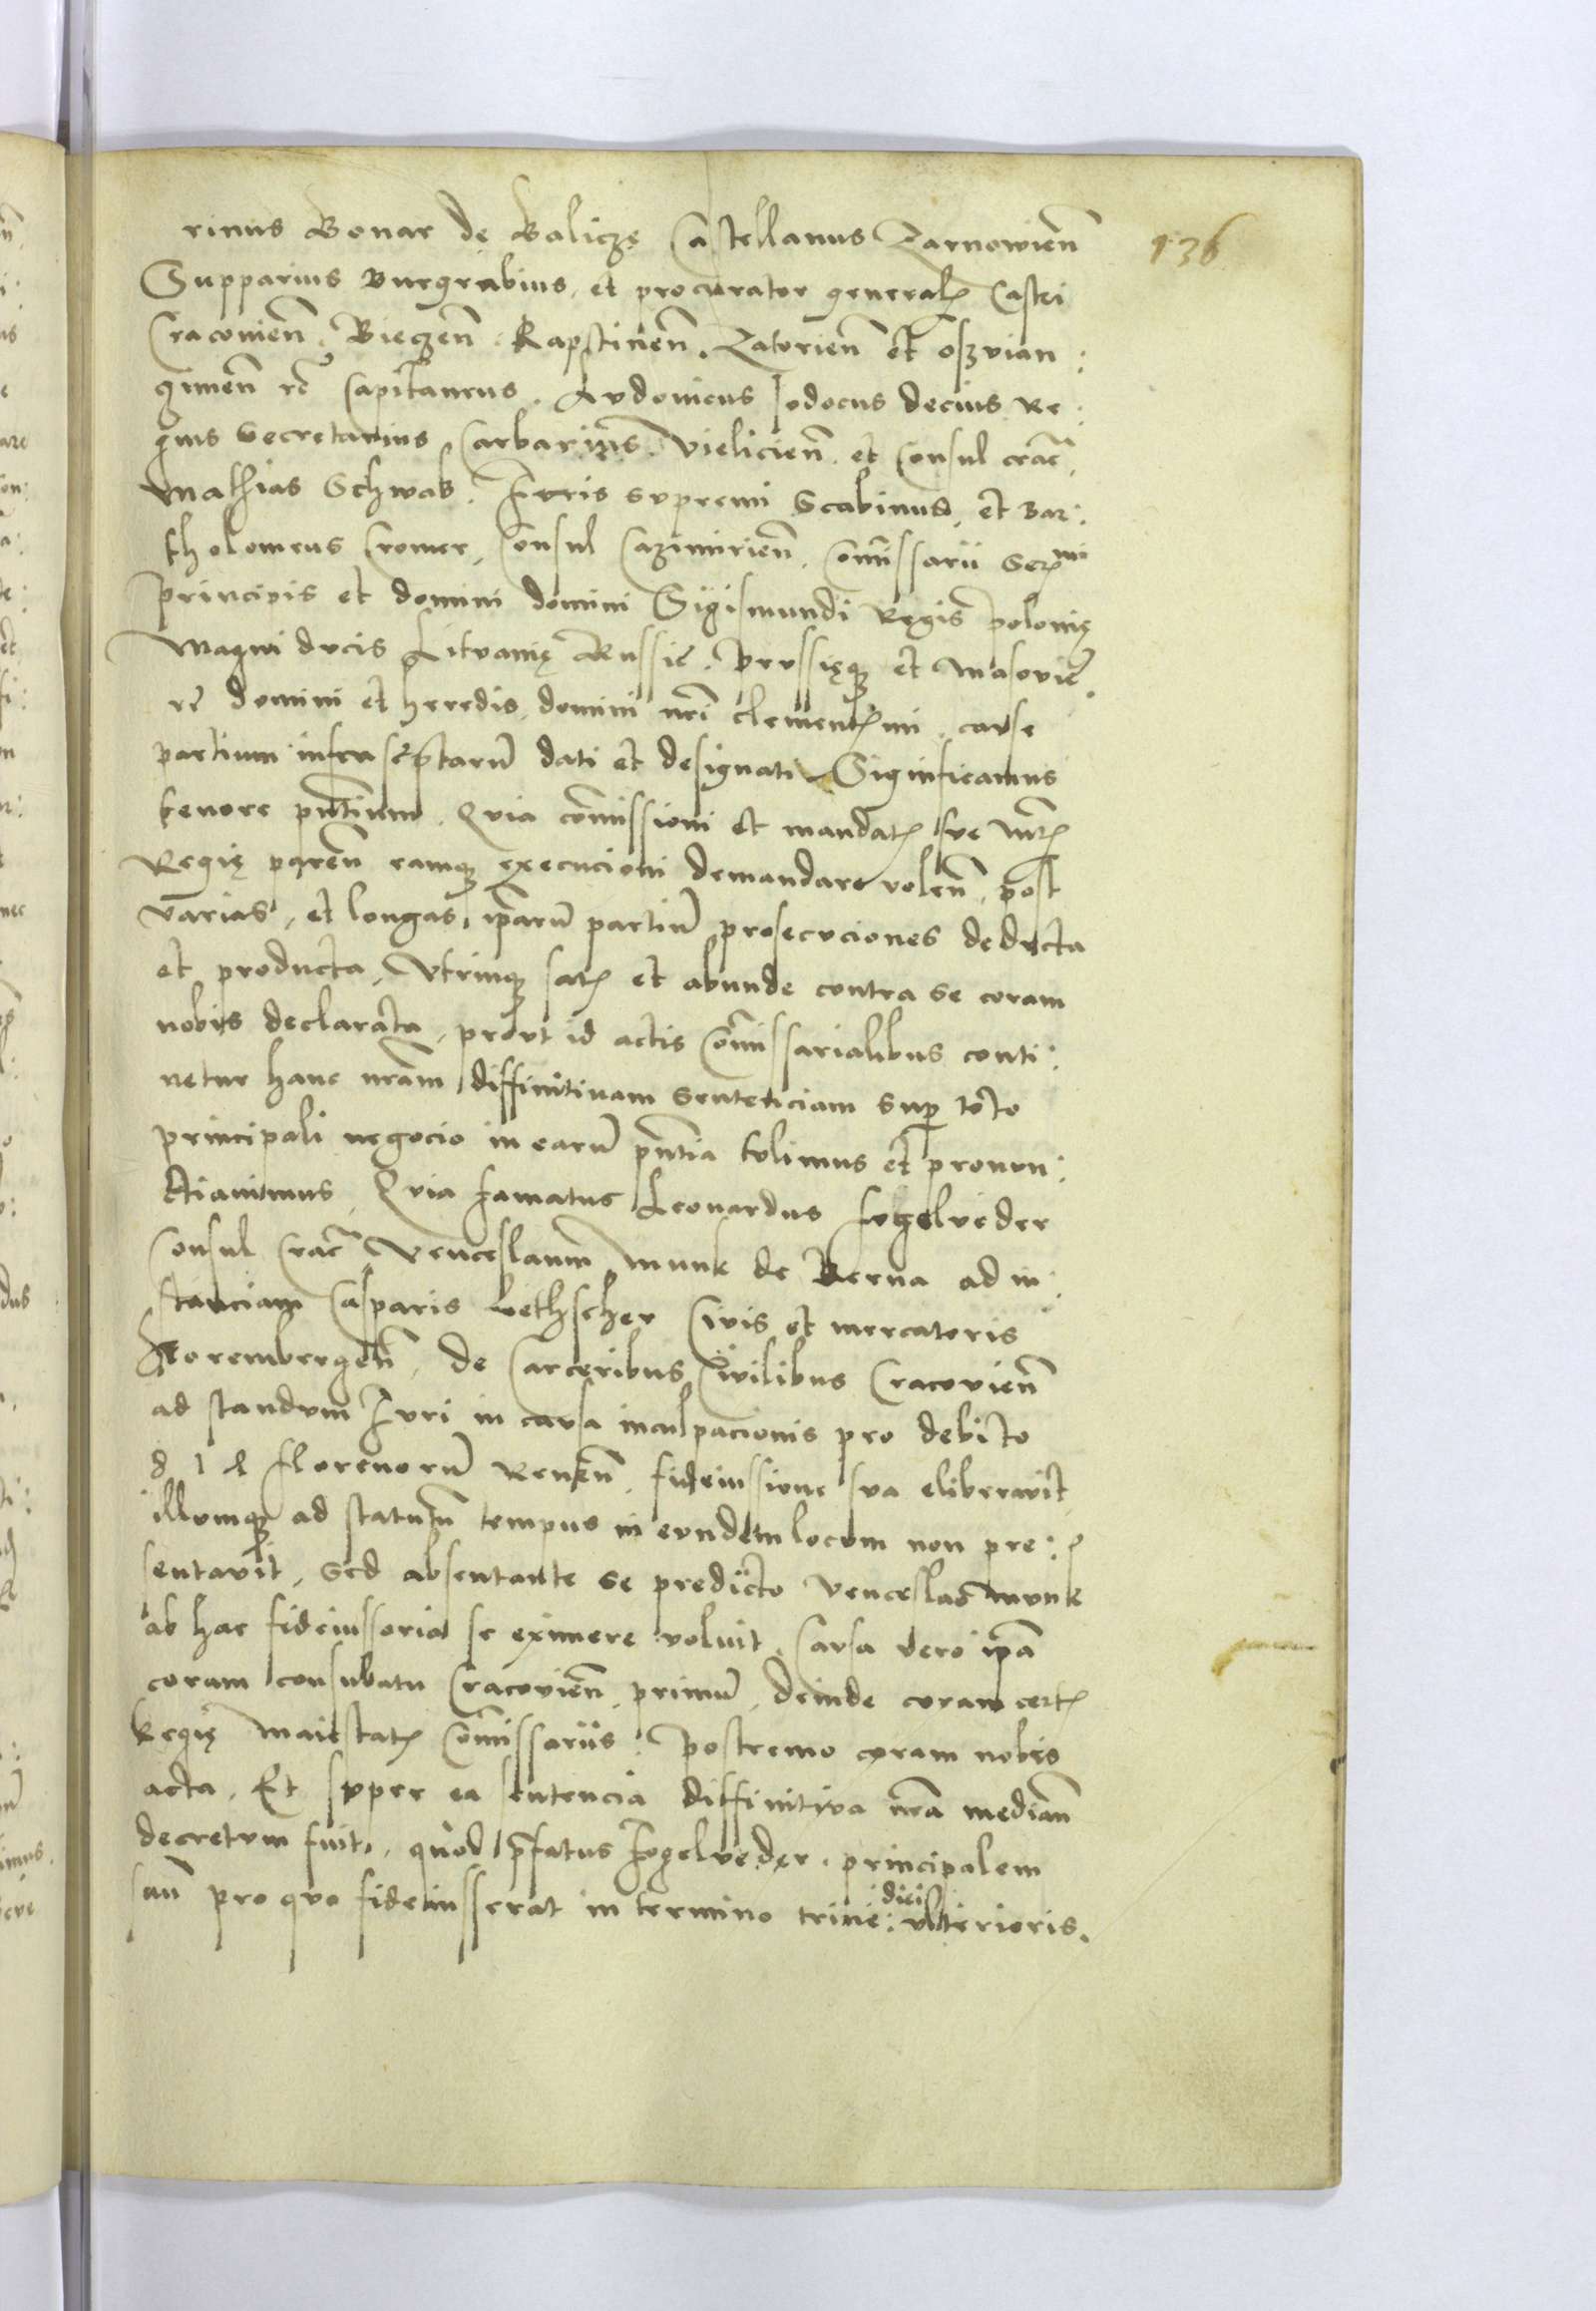 rinus Bonar de Baliczę Castellanus Zarnowien̄
136
Supparius Burgrabius, et procurator generalꝭ Castri
Cracovien̄. Bieczen̄. Rapstinen̄. Zatorien̄ et oszvian:
gimen̄ rc̄ Capitaneus. Ludovicus Jodocus decius Re:
gius Secretarius, Carbarius Vielicien̄. et Consul crac̄,
Mathias Schwab. Juris supremi Scabinus, et Bar:
tholomeus Cromer, Consul Cazimirien̄, Com̄issarii Serᵐⁱ
principis et domini domini Sigismundi Regis polonię
Magni ducis Lituanię Russie. Prussięqꝫ et Masovie
rc̄ domini et heredis, domini nr̄i clementꝭimi. cause
partium infrascr̄ptarū dati et designati Significamus
tenore pn̄tium. Quia com̄issioni et mandatꝭ sue Mtꝭ
Regię paren̄ eamqꝫ execucioni demandare volen̄, post
varias, et longas, ip̄arū partiū prosecuciones deducta
et producta, Utrinqꝫ satꝭ et abunde contra se coram
nobis declarata, prout id actis Com̄issarialibus conti:
netur hanc nr̄am diffinitivam sentenciam sup̄ toto
principali negocio in earū pn̄tia tulimus et pronun:
ctiavimus, Quia famatus Leonardus fogelveder
Consul Crac̄ Venceslaum Munk de Berna ad in:
stanciam Casparis Bethscher Civis et mercatoris
Norembergen̄. de Carceribus Civilibus Cracovien̄
ad standum Juri in causa inculpacionis pro debito
814 florenorū Renen̄, fideiussione sua eliberavit
illumqꝫ ad statutū tempus in eundem locum non pre:
sentavit, Sed absentante se predicto Venceslao munk
ab hac fideiussoria se eximere voluit. Causa vero ip̄a
coram consulatu Cracovien̄. primū, deinde coram certꝭ
Regię Maiestatꝭ Com̄issariis: Postremo coram nobis
acta. Et super ea sentencia diffinitiva nr̄a median̄
decretum fuit, quod p̄fatus Fogelveder. principalem
suū pro quo fideiusserat in termino trine: diei ulterioris.